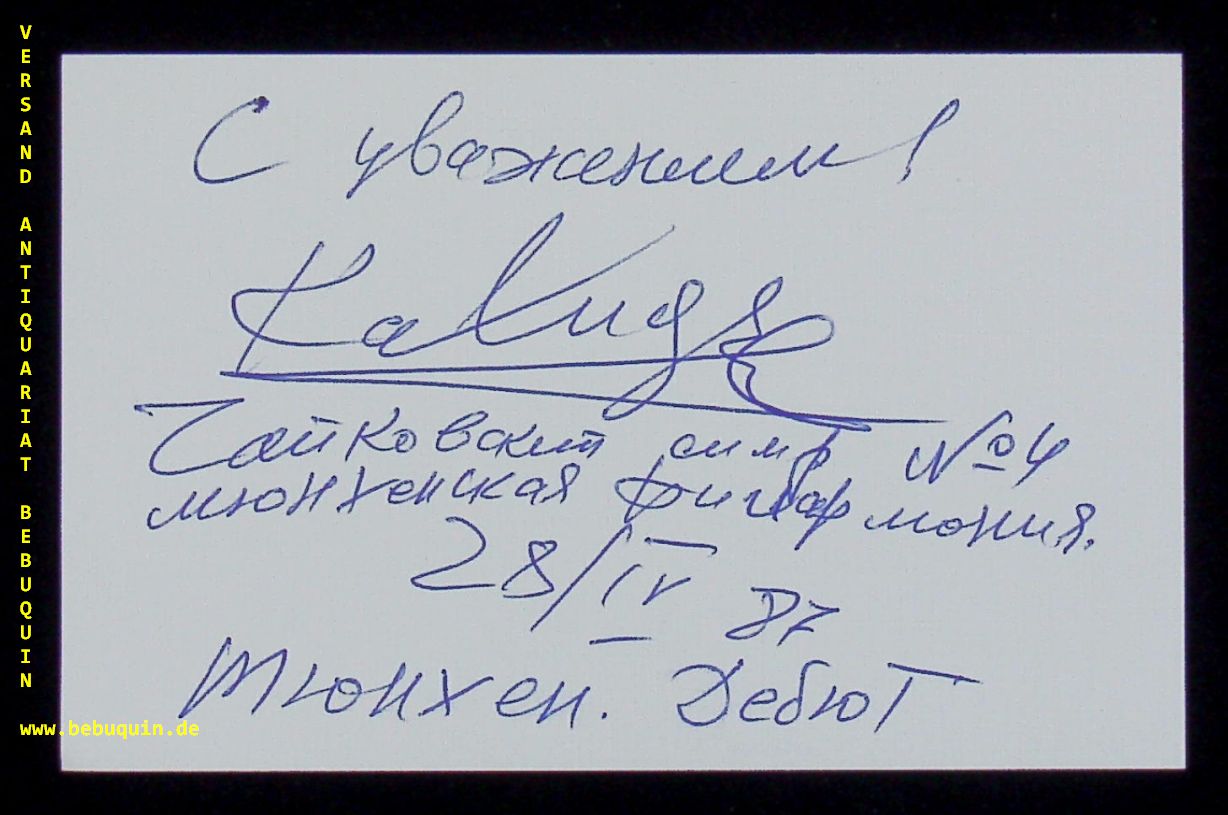 С уважением!
Кахидзе
Чайковский симф №4
мюнхенская филармония.
28/IV 87
Мюнхен. Дебют
VERSAND ANTIQUARIAT BEBUQUIN
www.bebuquin.de